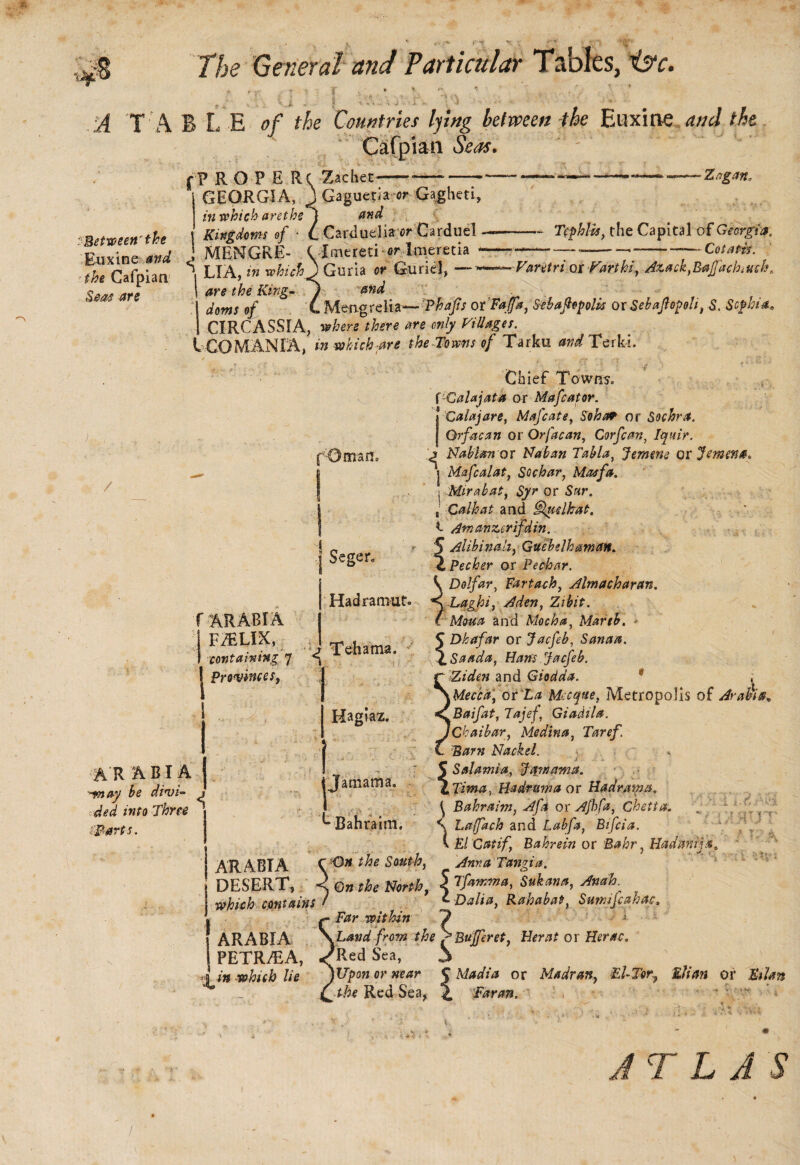 48 The General and Particular Tables, &c.
A TABLE of the Countries lying between the Euxine and the
Caſpian Seas.
Between the
Euxine and
the Caſpian
Seas are
PROPER
GEORGIA,
in which are the
Kingdoms of
Zachet Zagan.
Gaguetia or Gagheti,
and
Carduelia or Carduel Tephlis, the Capital of Georgia.
MENGRE-
LIA, in which
are the King-
doms of
Imereti or Imeretia Cotatis.
Guria or Guriel, Vardtri or Varthi, Azack, Baſſachiuch.
and
Mengrelia Phaſis or Faſſa, Sebaſtopolis or Sebaſtopoli, S. Sophia.
CIRCASSIA, where there are only Villages.
COMANIA, in which are the Towns of Tarku and Terki.
Chief Towns.
ARABIA
may be divi-
ded into Three
Parts.
ARABIA
FÆLIX,
containing 7
Provinces,
Oman.
Calajata or Maſcator.
Calajare, Maſcate, Sohar or Sochra.
Orfacan or Orſacan, Corſcan, Iquir.
Nablan or Naban Tabla, Jemene or Jemena.
Maſcalat, Sochar, Maſfa.
Mirabat, Syr or Sur.
Calhat and Quelhat.
Amanzirifdin.
Seger.
Alibinali, Guebelhaman.
Pecher or Pechar.
Hadramut.
Dolfar, Fartach, Almacharan.
Laghi, Aden, Zibit.
Moua and Mocha, Mareb.
Tehama.
Dhafar or Jacfeb, Sanaa.
Saada, Hans Jacfeb.
Hagiaz.
Ziden and Giodda.
Mecca, or La Mecque, Metropolis of Arabia.
Baiſat, Tajef, Giadila.
Chaibar, Medina, Taref.
Barn Nackel.
Jamama.
Salamia, Jamama.
Tima, Hadruma or Hadrama.
Bahraim.
Bahraim, Aſa or Aſhſa, Chetta.
Laſſach and Labſa, Biſcia.
El Catif, Bahrein or Bahr, Hadanija.
ARABIA
DESERT,
which contains
On the South,
Anna Tangia.
On the North,
Tſamma, Sukana, Anah.
Dalia, Rahabat, Sumiſcahac.
ARABIA
PETRÆA,
in which lie
Far within
Land from the
Red Sea,
Buſſeret, Herat or Herac.
Upon or near
the Red Sea,
Madia or Madran, El-Tor, Elian or Eilan
Faran.
ATLAS